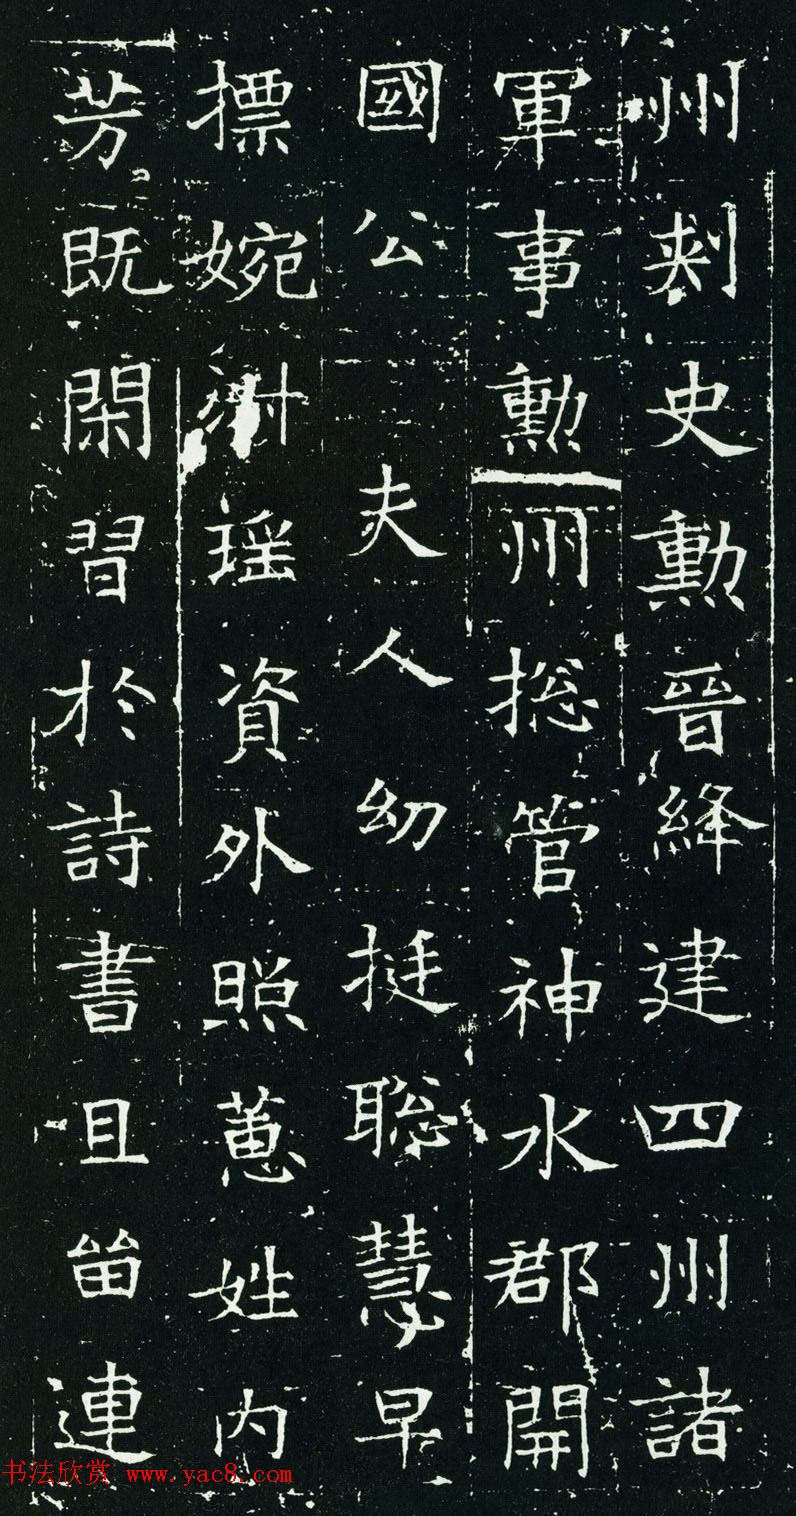 州刾史勲晉絳建四州諸
軍事勲州捴管神水郡開
國公 夫人幼挺聡慧早
摽婉淑瑶資外照蕙姓内
芳既閑習於詩書且畄連
书法欣赏 www.yac8.com